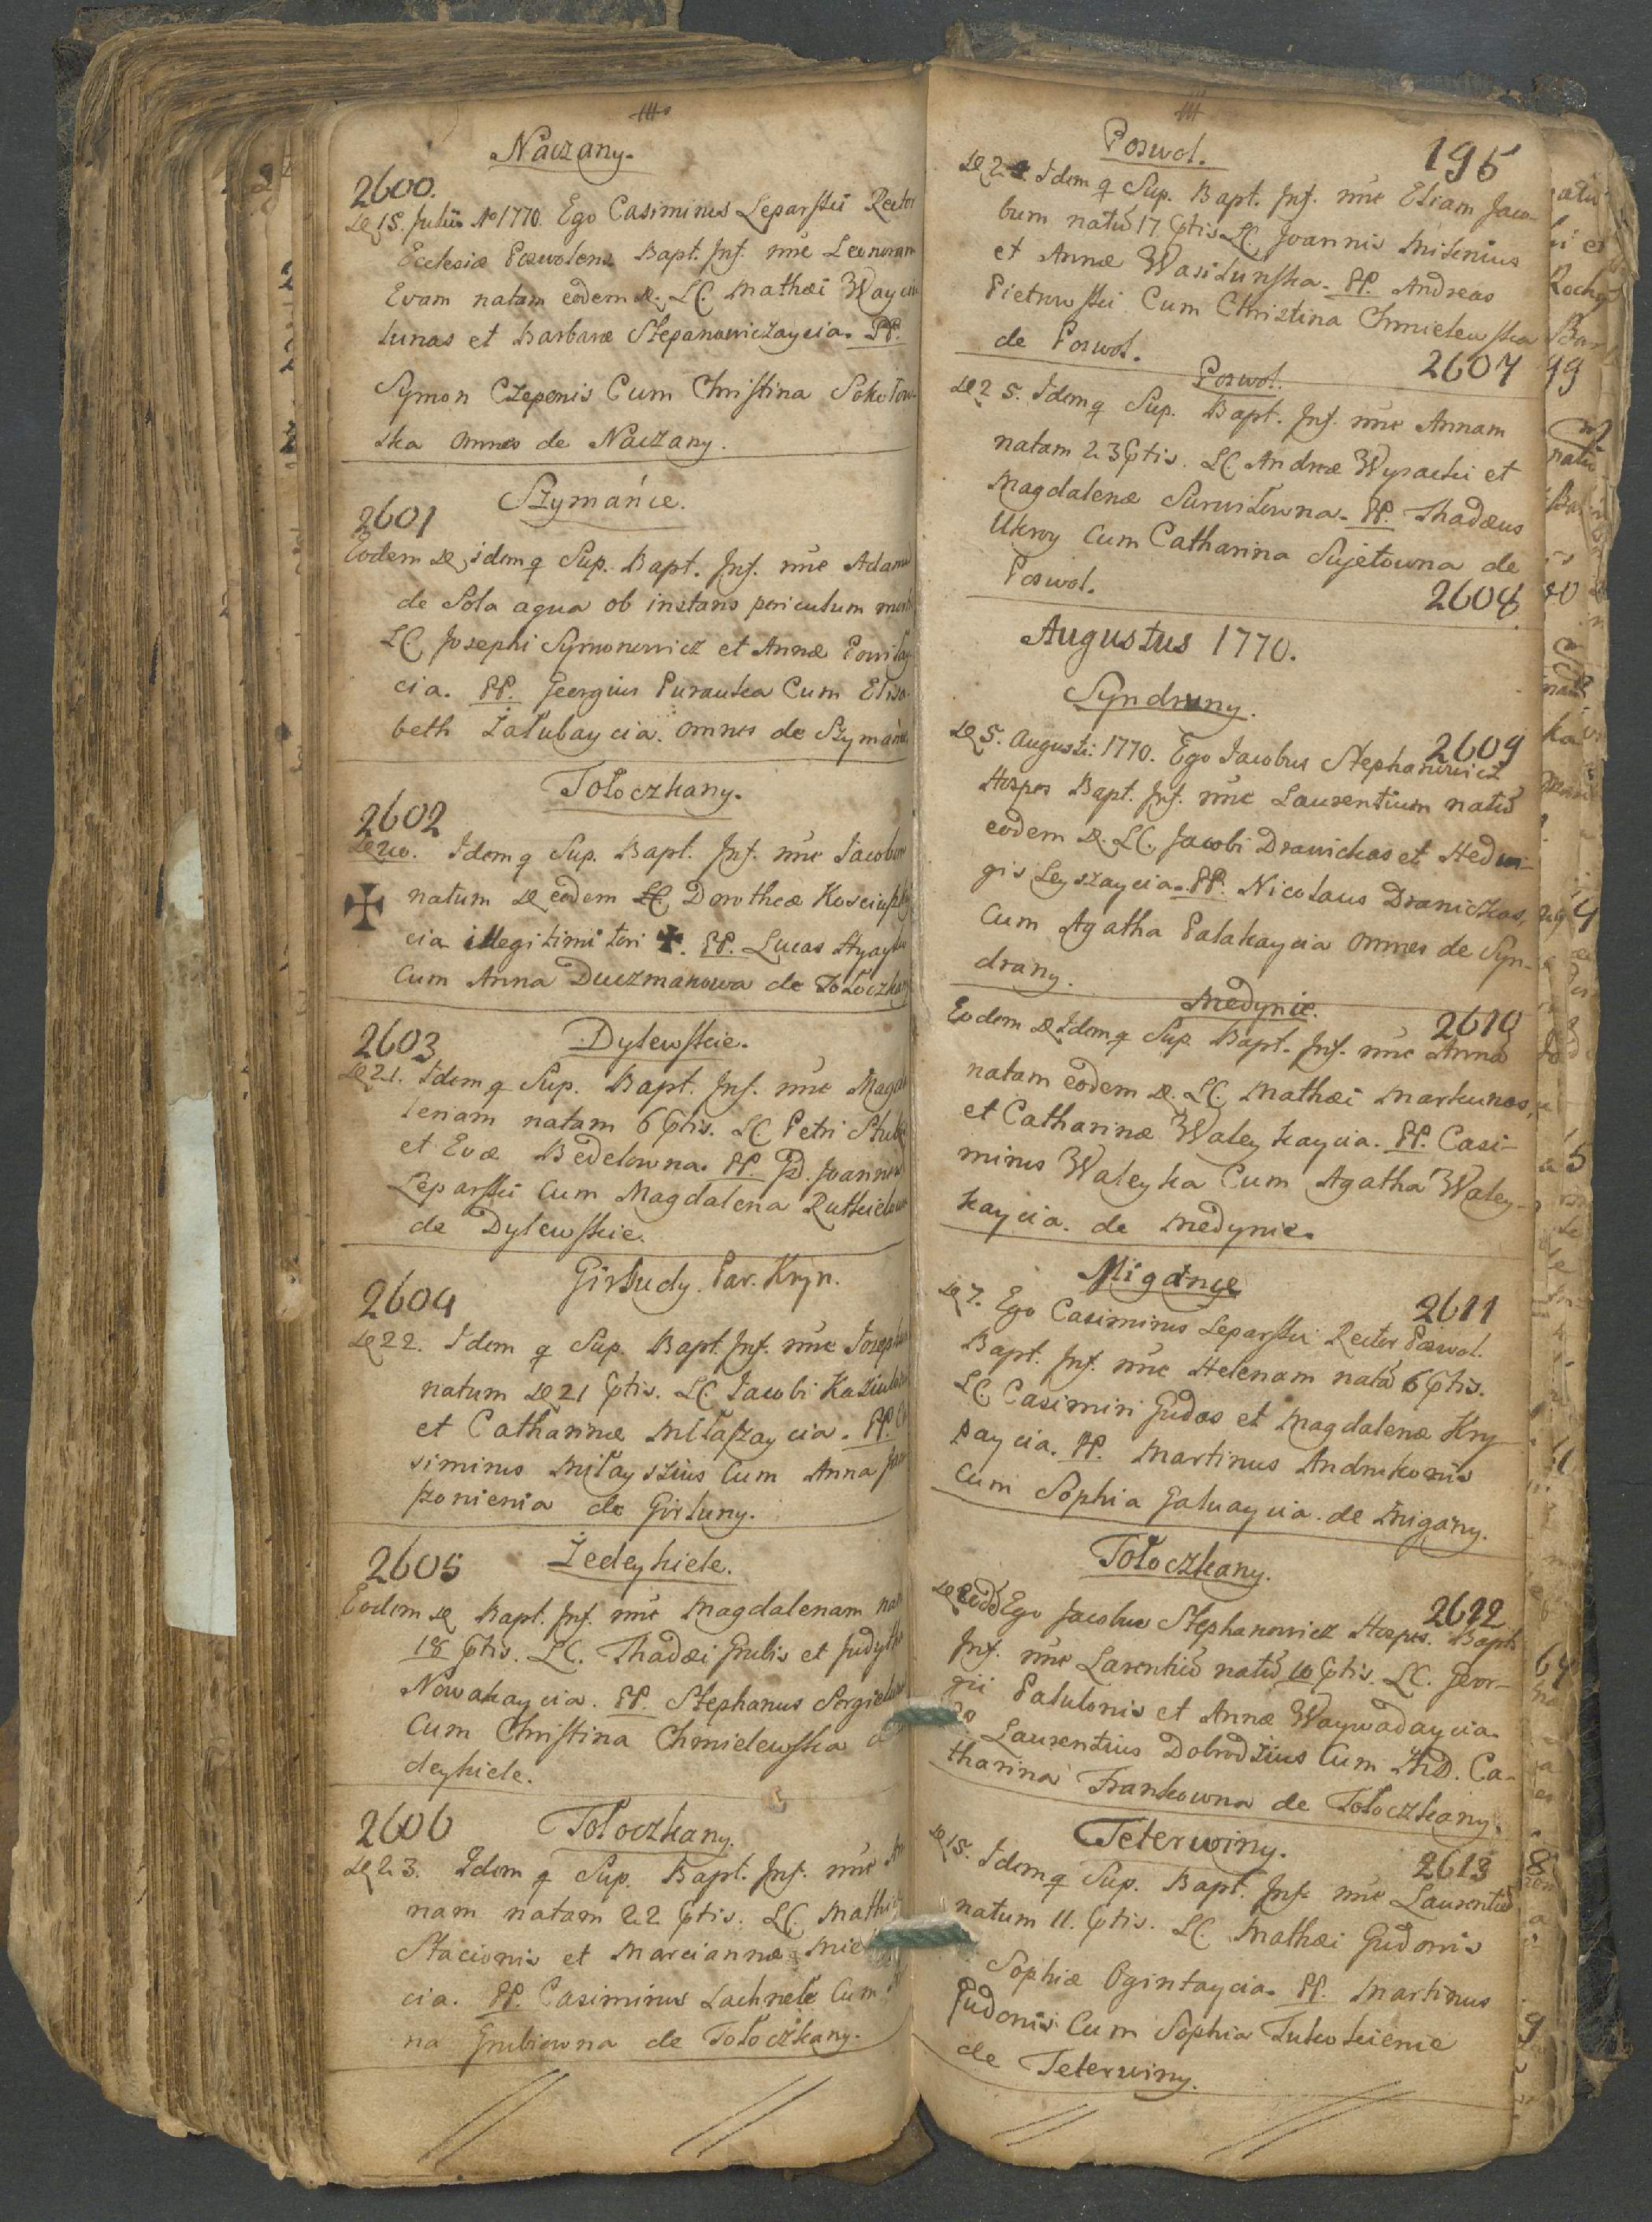 Naczany.
2600.
D 15. Julii Ao 1770. Ego Casimirus Leparskii Rector
Ecclesiæ Poswolens. Bapt. Inf. nñe Leonoram
Evam natam eodem D. LC. Mathæi Wayci
lunas et Barbaræ Stepanowiczaycia. PP.
Symon Czepenis Cum Christina Sokołow-
ska omnes de Naczany.
Szymańce.
2601
Eodem D, idemq Sup. Bapt. Inf. nñe Adam
de Sola aqua ob instans periculum mort
LC. Josephi Symonowicz et Annæ
cia. PP. Georgius Purauka Cum Elisa-
beth Załubaycia. omnes de Szymańce
Tołoczkany.
2602
D 20. Idemq Sup. Bapt. Inf. nñe Jacobum
natum D eodem LC. Dorotheæ
cia illegitimi tori ✠. PP. Lucas
Cum Anna Duczmanowa de Tołoczkany
2603
Dylewskie.
D 21. Idemq Sup. Bapt. Inf. nñe Magda
lenam natam 6 Gtis. LC Petri
et Evæ Bedelowna. PP. Joannes
Leparskii Cum Magdalena
de Dylewskie.
Girkudy. Par. Kryn.
2604
D 22. Idem q Sup. Bapt. Inf. nñe Joseph
natum D 21 Gtis. LC. Jacobi
et Catharinæ Miłaszaycia. PP. Ca
simirus Miłayszius Cum Anna
szonienia de Girkuny.
2605
Zedeykiele.
Eodem D Bapt. Inf. nñe Magdalenam nat
18 Gtis. LC. Thadæi Grubis et Judytha
Nowakaycia. PP. Stephanus
Cum Christina Chmielewska
deykiele.
2606
Tołoczkany.
D 23. Idem q Sup. Bapt. Inf. nñe An
nam natam 22 Gtis. LC. Mathæi
Stacionis et Marciannæ
cia. PP. Casimirus Lachnele Cum
na Grubiowna de Tołoczkany.
Poswol.
195
D 24 Idem q Sup. Bapt. Inf. nñe Eliam Jaco-
bum natũ 17 Gtis LC. Joannis Milenius
et Annæ Wasilunska. PP. Andreas
Pietrowskii Cum Christina Chmielewska
de Poswol.
2607
Poswol.
D 25. Idemq Sup. Bapt. Inf. nñe Annam
natam 23 Gtis. LC Andreæ Wysackii et
Magdalenæ Surwiłowna. PP. Thadæus
Ukroy Cum Catharina Syietowna de
Poswol.
2608
Augustus 1770.
Syndrany.
2609
D 5. Augusti: 1770. Ego Jacobus Stephanowicz
Hospes Bapt. Inf. nñe Laurentium natũ
eodem D. LC. Jacobi Dranickas et Hedwi-
gis Leyszaycia. PP. Nicolaus Dranickas,
Cum Agatha Palakaycia omnes de Syn-
drany.
Medynie.
2610
Eodem D Idemq Sup. Bapt. Inf. nñe Annã
natam eodem D. LC. Mathæi Markunas,
et Catharinæ Waleykaycia. PP. Casi-
mirus Waleyka Cum Agatha Waley-
kaycia. de Medynie.
Migańce
2611
D 7. Ego Casimirus Leparskii Rector Poswol.
Bapt. Inf. nñe Helenam natã 6 Gtis.
LC. Casimiri Gudas et Magdalenæ Kry
paycia. PP. Martinus Andrukonis
Cum Sophia Galuaycia de Migany.
Tołoczkany.
2612
D eodẽ Ego Jacobus Stephanowicz Hospes. Bapt.
Inf. nñe Larentiũ natũ 10 Gtis. LC. Geor-
gii Patulonis et Annæ Waywadaycia.
PP. Laurentius Dobrodzius Cum MD. Ca-
tharina Frankowna de Tołoczkany.
Teterwiny.
2613
D 15. Idemq Sup. Bapt. Inf. nñe Laurentiũ
natum 11. Gtis. LC. Mathæi Gudonis
Sophiæ Ogintaycia. PP. Martinus
Gudonis Cum Sophia Tulokienie
de Teterwiny.